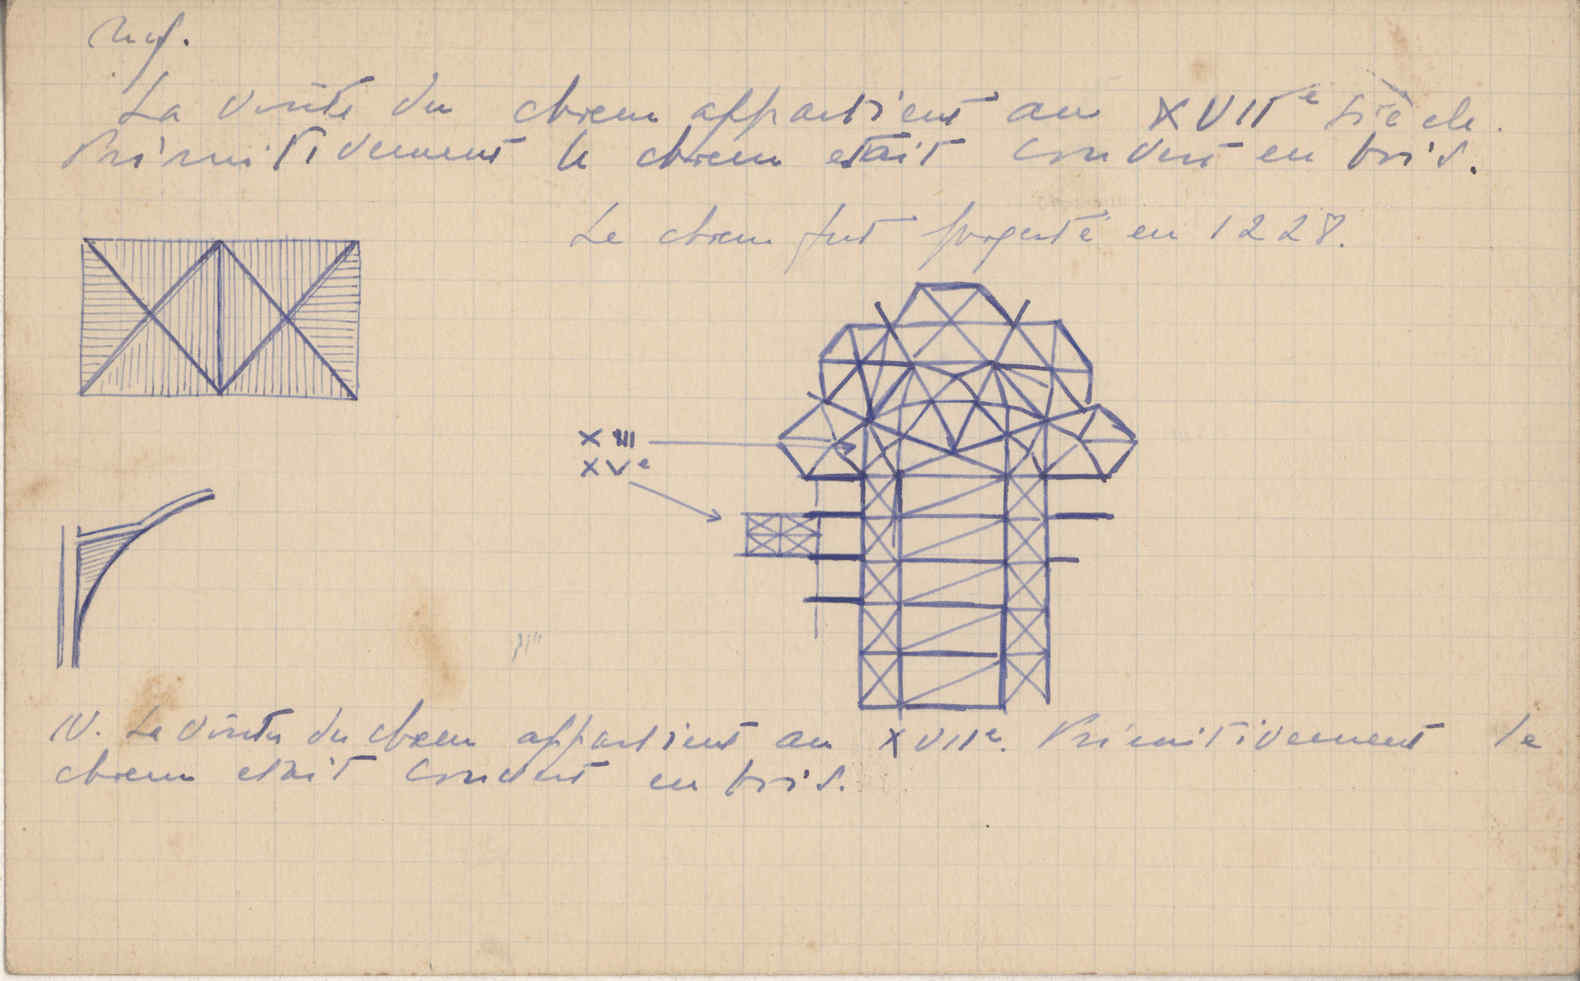 Nef.
La voûte du chœur appartient au XVIIe siècle.
Primitivement le chœur etait couvert en bois.
Le chœur fut projeté en 1228.
XIII
XVe
IV. La voûte du chœur appartient au XVIIe. Primitivement le
chœur etait couvert en bois.